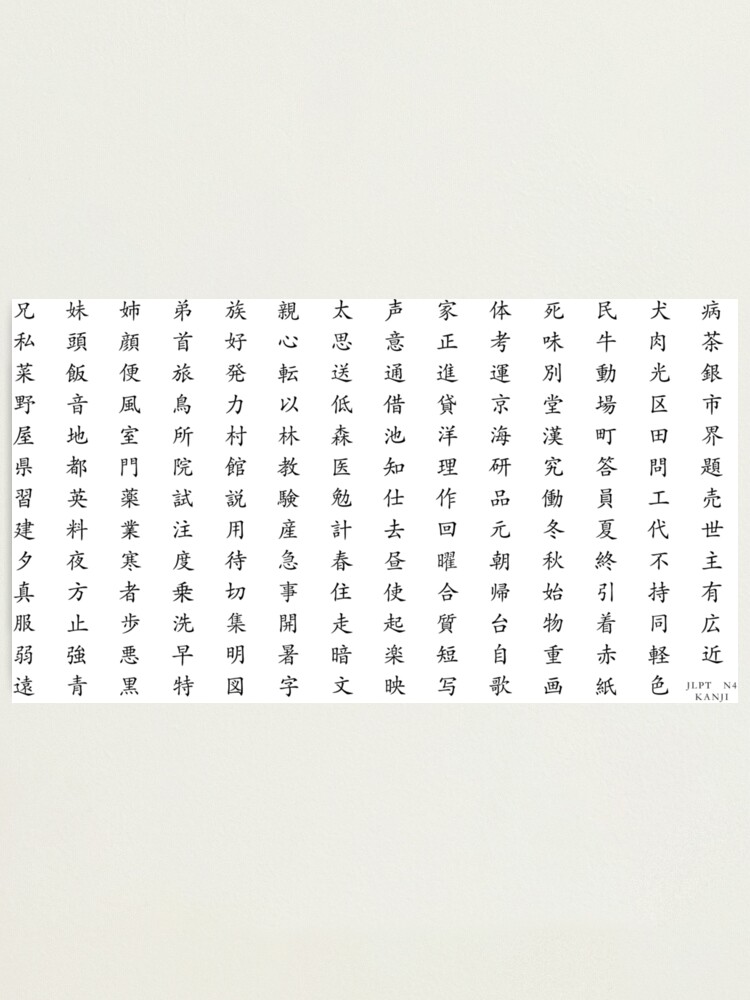 兄 妹 姉 弟 族 親 太 声 家 体 死 民 犬 病
私 頭 顔 首 好 心 思 意 正 考 味 牛 肉 茶
菜 飯 便 旅 発 転 送 通 進 運 別 動 光 銀
野 音 風 鳥 力 以 低 借 貸 京 堂 場 区 市
屋 地 室 所 村 林 森 池 洋 海 漢 町 田 界
県 都 門 院 館 教 医 知 理 研 究 答 問 題
習 英 薬 試 説 験 勉 仕 作 品 働 員 工 売
建 料 業 注 用 産 計 去 回 元 冬 夏 代 世
夕 夜 寒 度 待 急 春 昼 曜 朝 秋 終 不 主
真 方 者 乗 切 事 住 使 合 帰 始 引 持 有
服 止 歩 洗 集 開 走 起 質 台 物 着 同 広
弱 強 悪 早 明 暑 暗 楽 短 自 重 赤 軽 近
遠 青 黒 特 図 字 文 映 写 歌 画 紙 色 JLPT N4
KANJI